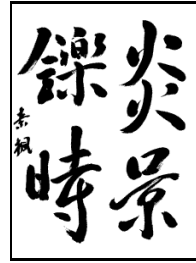 炎景
鑠時
素楓